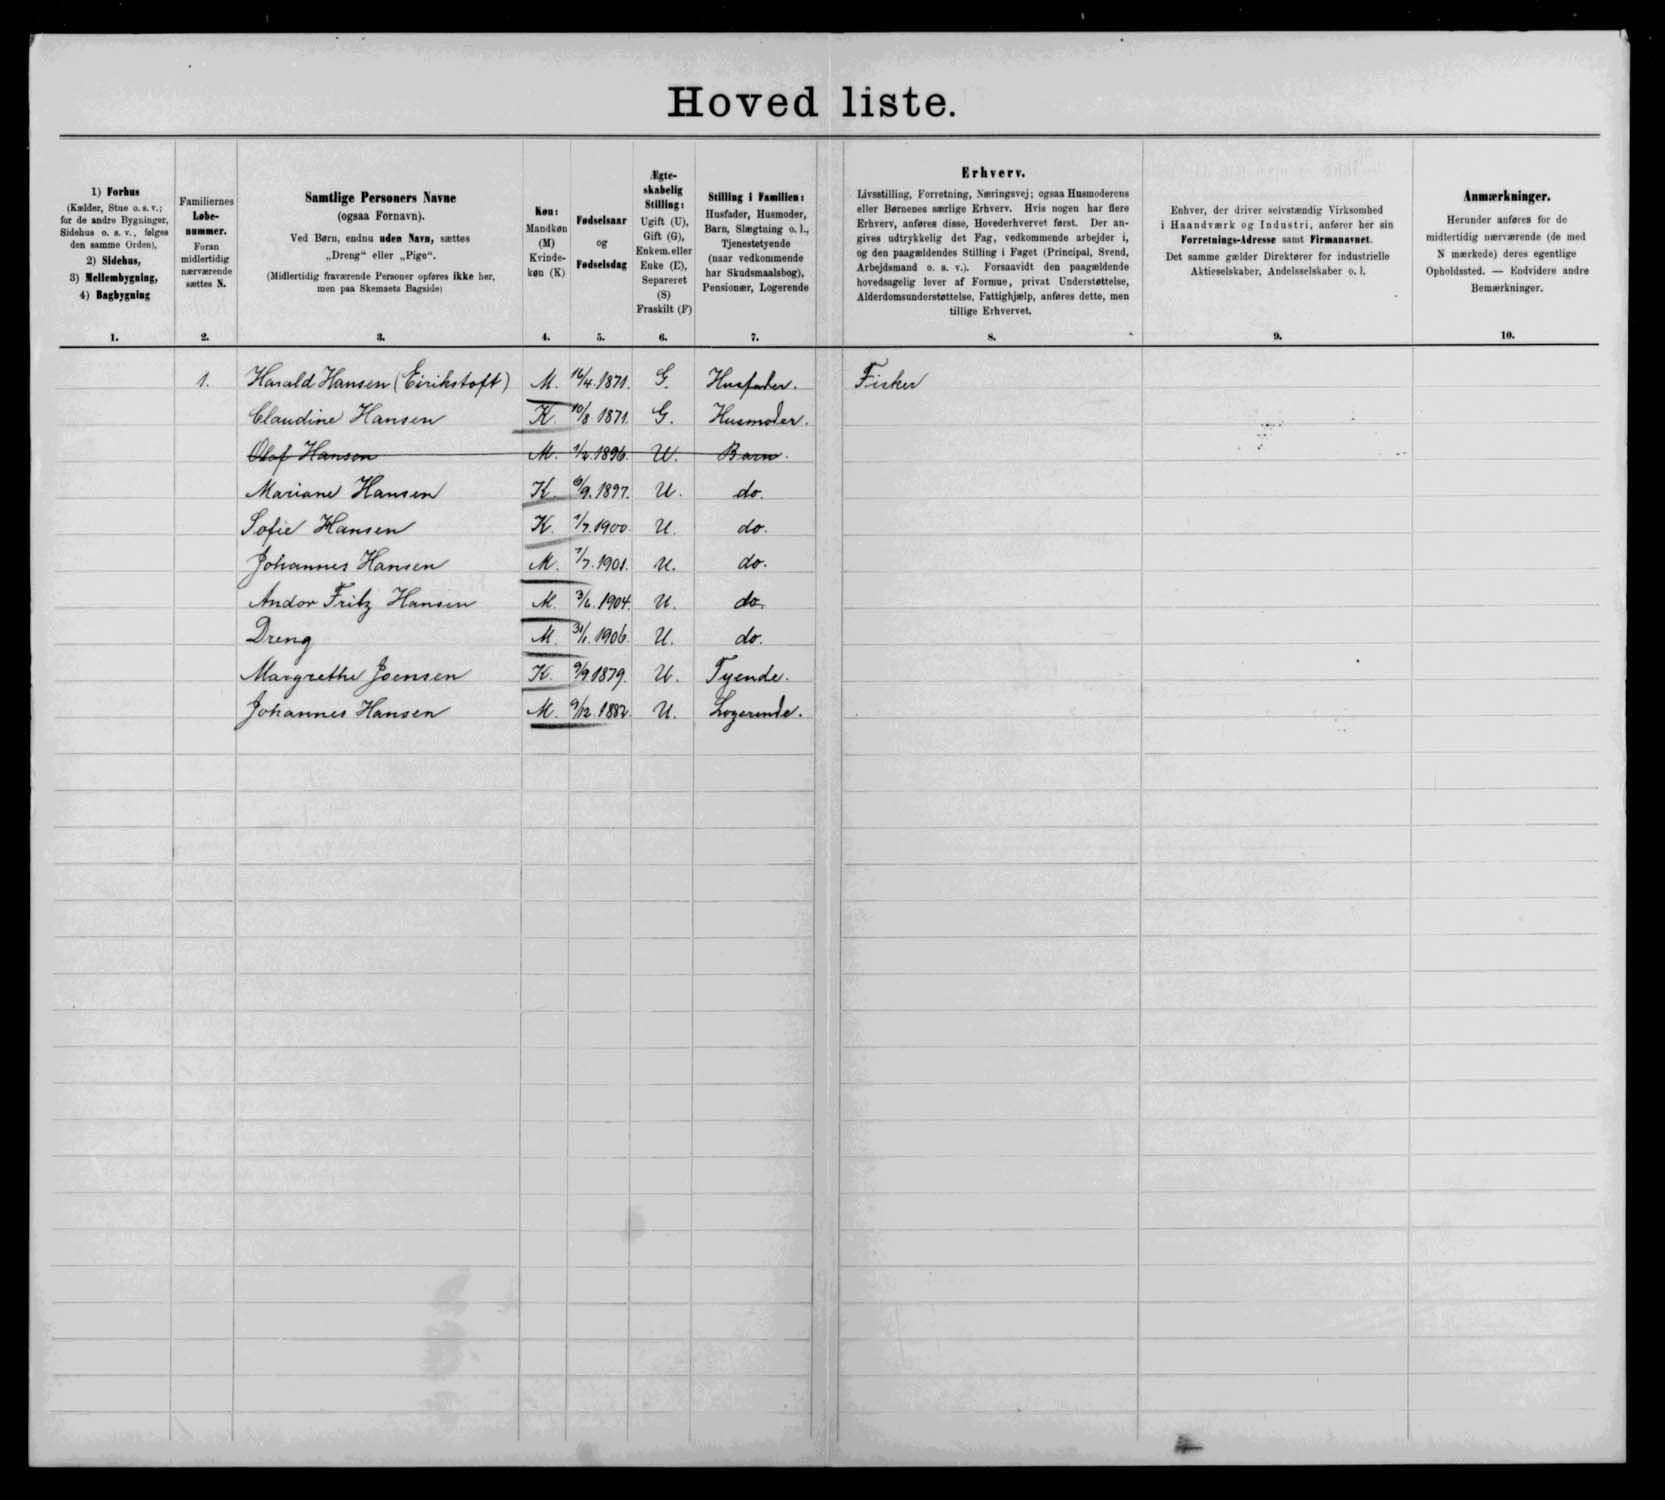 Hoved liste.
1) Forhus
(Kælder, Stue o. s. v.;
for de andre Bygninger,
Sidehus o. s. v., følges
den samme Orden),
2) Sidehus,
3) Mellembygning,
4) Bagbygning
1.
Familiernes
Løbe-
nummer.
Foran
midlertidig
nærværende
sættes N.
2.
Samtlige Personers Navne
(ogsaa Fornavn).
Ved Børn, endnu uden Navn, sættes
„Dreng“ eller „Pige“.
(Midlertidig fraværende Personer opføres ikke her,
men paa Skemaets Bagside)
3.
Køn:
Mandkøn
(M)
Kvinde-
køn (K)
4.
Fødselsaar
og
Fødselsdag
5.
Ægte-
skabelig
Stilling:
Ugift (U),
Gift (G),
Enkem. eller
Enke (E),
Separeret
(S)
Fraskilt (F)
6.
Stilling i Familien:
Husfader, Husmoder,
Barn, Slægtning o. l.,
Tjenestetyende
(naar vedkommende
har Skudsmaalsbog),
Pensionær, Logerende
7.
Erhverv.
Livsstilling, Forretning, Næringsvej; ogsaa Husmoderens
eller Børnenes særlige Erhverv. Hvis nogen har flere
Erhverv, anføres disse, Hovederhvervet først. Der an-
gives udtrykkelig det Fag, vedkommende arbejder i,
og den paagældendes Stilling i Faget (Principal, Svend,
Arbejdsmand o. s. v.). Forsaavidt den paagældende
hovedsagelig lever af Formue, privat Understøttelse,
Alderdomsunderstøttelse, Fattighjælp, anføres dette, men
tillige Erhvervet.
8.
Enhver, der driver selvstændig Virksomhed
i Haandværk og Industri, anfører her sin
Forretnings-Adresse samt Firmanavnet.
Det samme gælder Direktører for industrielle
Aktieselskaber, Andelsselskaber o. l.
9.
Anmærkninger.
Herunder anføres for de
midlertidig nærværende (de med
N mærkede) deres egentlige
Opholdssted. — Endvidere andre
Bemærkninger.
10.
1. Harald Hansen (Eirikstoft) M. 16/4. 1871. G. Husfader. Fisker
Claudine Hansen K. 10/8. 1871. G. Husmoder.
Olaf Hansen M. 1/2. 1896. U. Barn.
Mariane Hansen K. 6/9. 1897. U. do.
Sofie Hansen K. 1/7. 1900. U. do.
Johannes Hansen M. 7/7. 1901. U. do.
Andor Fritz Hansen M. 1904. U. do.
Dreng M. 31/1. 1906. U. do.
Margrethe Joensen K. 9/9 1879. U. Tyende.
Johannes Hansen M. 9/12. 1882. U. Logerende.